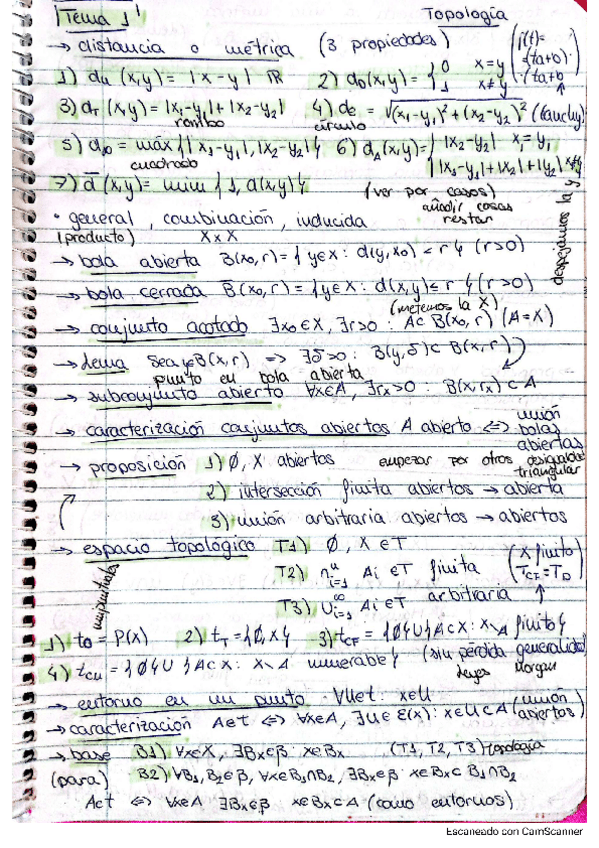 Tema 1 Topología
→ distancia o métrica (3 propiedades)
1) du (x,y) = |x-y| ℝ 2) dD(x,y) = { 0 x=y
1 x≠y
3) dT (x,y) = |x1-y1| + |x2-y2| 4) de = √(x1-y1)² + (x2-y2)²
rombo círculo
5) d∞ = máx{|x1-y1|, |x2-y2|} 6) dA(x,y) = { |x2-y2| x1=y1
cuadrado |x1-y1|+|x2|+|y2|
7) d̄(x,y) = min {1, d(x,y)} (ver por casos)
añadir cosas
restar
despejamos la y
• general, combinación, inducida
(producto) XxX
→ bola abierta B(x0,r) = {y∈X: d(y,x0) < r} (r>0)
→ bola cerrada B(x0,r) = {y∈X: d(x,y) ≤ r} (r>0)
(metemos la X)
→ conjunto acotado ∃x0∈X, ∃r>0 : A⊂ B(x0,r) (A=X)
→ lema Sea y∈B(x,r) => ∃δ>0 : B(y,δ)⊂ B(x,r)
punto en bola abierta
→ subconjunto abierto ∀x∈A, ∃rx>0 : B(x,rx) ⊂ A
→ caracterización conjuntos abiertos A abierto <=> unión
bolas
abiertas
→ proposición 1) ∅, X abiertos empezar por otros desigualdad
triangular
2) intersección finita abiertos → abierta
3) unión arbitraria abiertos → abiertos
→ espacio topológico T1) ∅, X ∈T
T2) ∩ⁿi=1 Ai ∈T finita (X finito)
TCF = TD
T3) U∞i=1 Ai ∈T arbitraria
1) tD = P(X) 2) tT = {∅, X} 3) tCF = {∅}U{A⊂X: X\A finito}
4) tCN = {∅}U{A⊂X: X\A numerable} (sin pérdida generalidad)
leyes Morgan
→ entorno en un punto · ∀U∈t: x∈U
→ caracterización A∈t <=> ∀x∈A, ∃U∈ε(x): x∈U⊂A (unión
abiertos)
→ base B1) ∀x∈X, ∃Bx∈β: x∈Bx (T1, T2, T3) topología
(para) B2) ∀B1,B2∈β, ∀x∈B1∩B2, ∃Bx∈β: x∈Bx⊂ B1∩B2
A∈t <=> ∀x∈A ∃Bx∈β x∈Bx⊂A (como entornos)
Escaneado con CamScanner